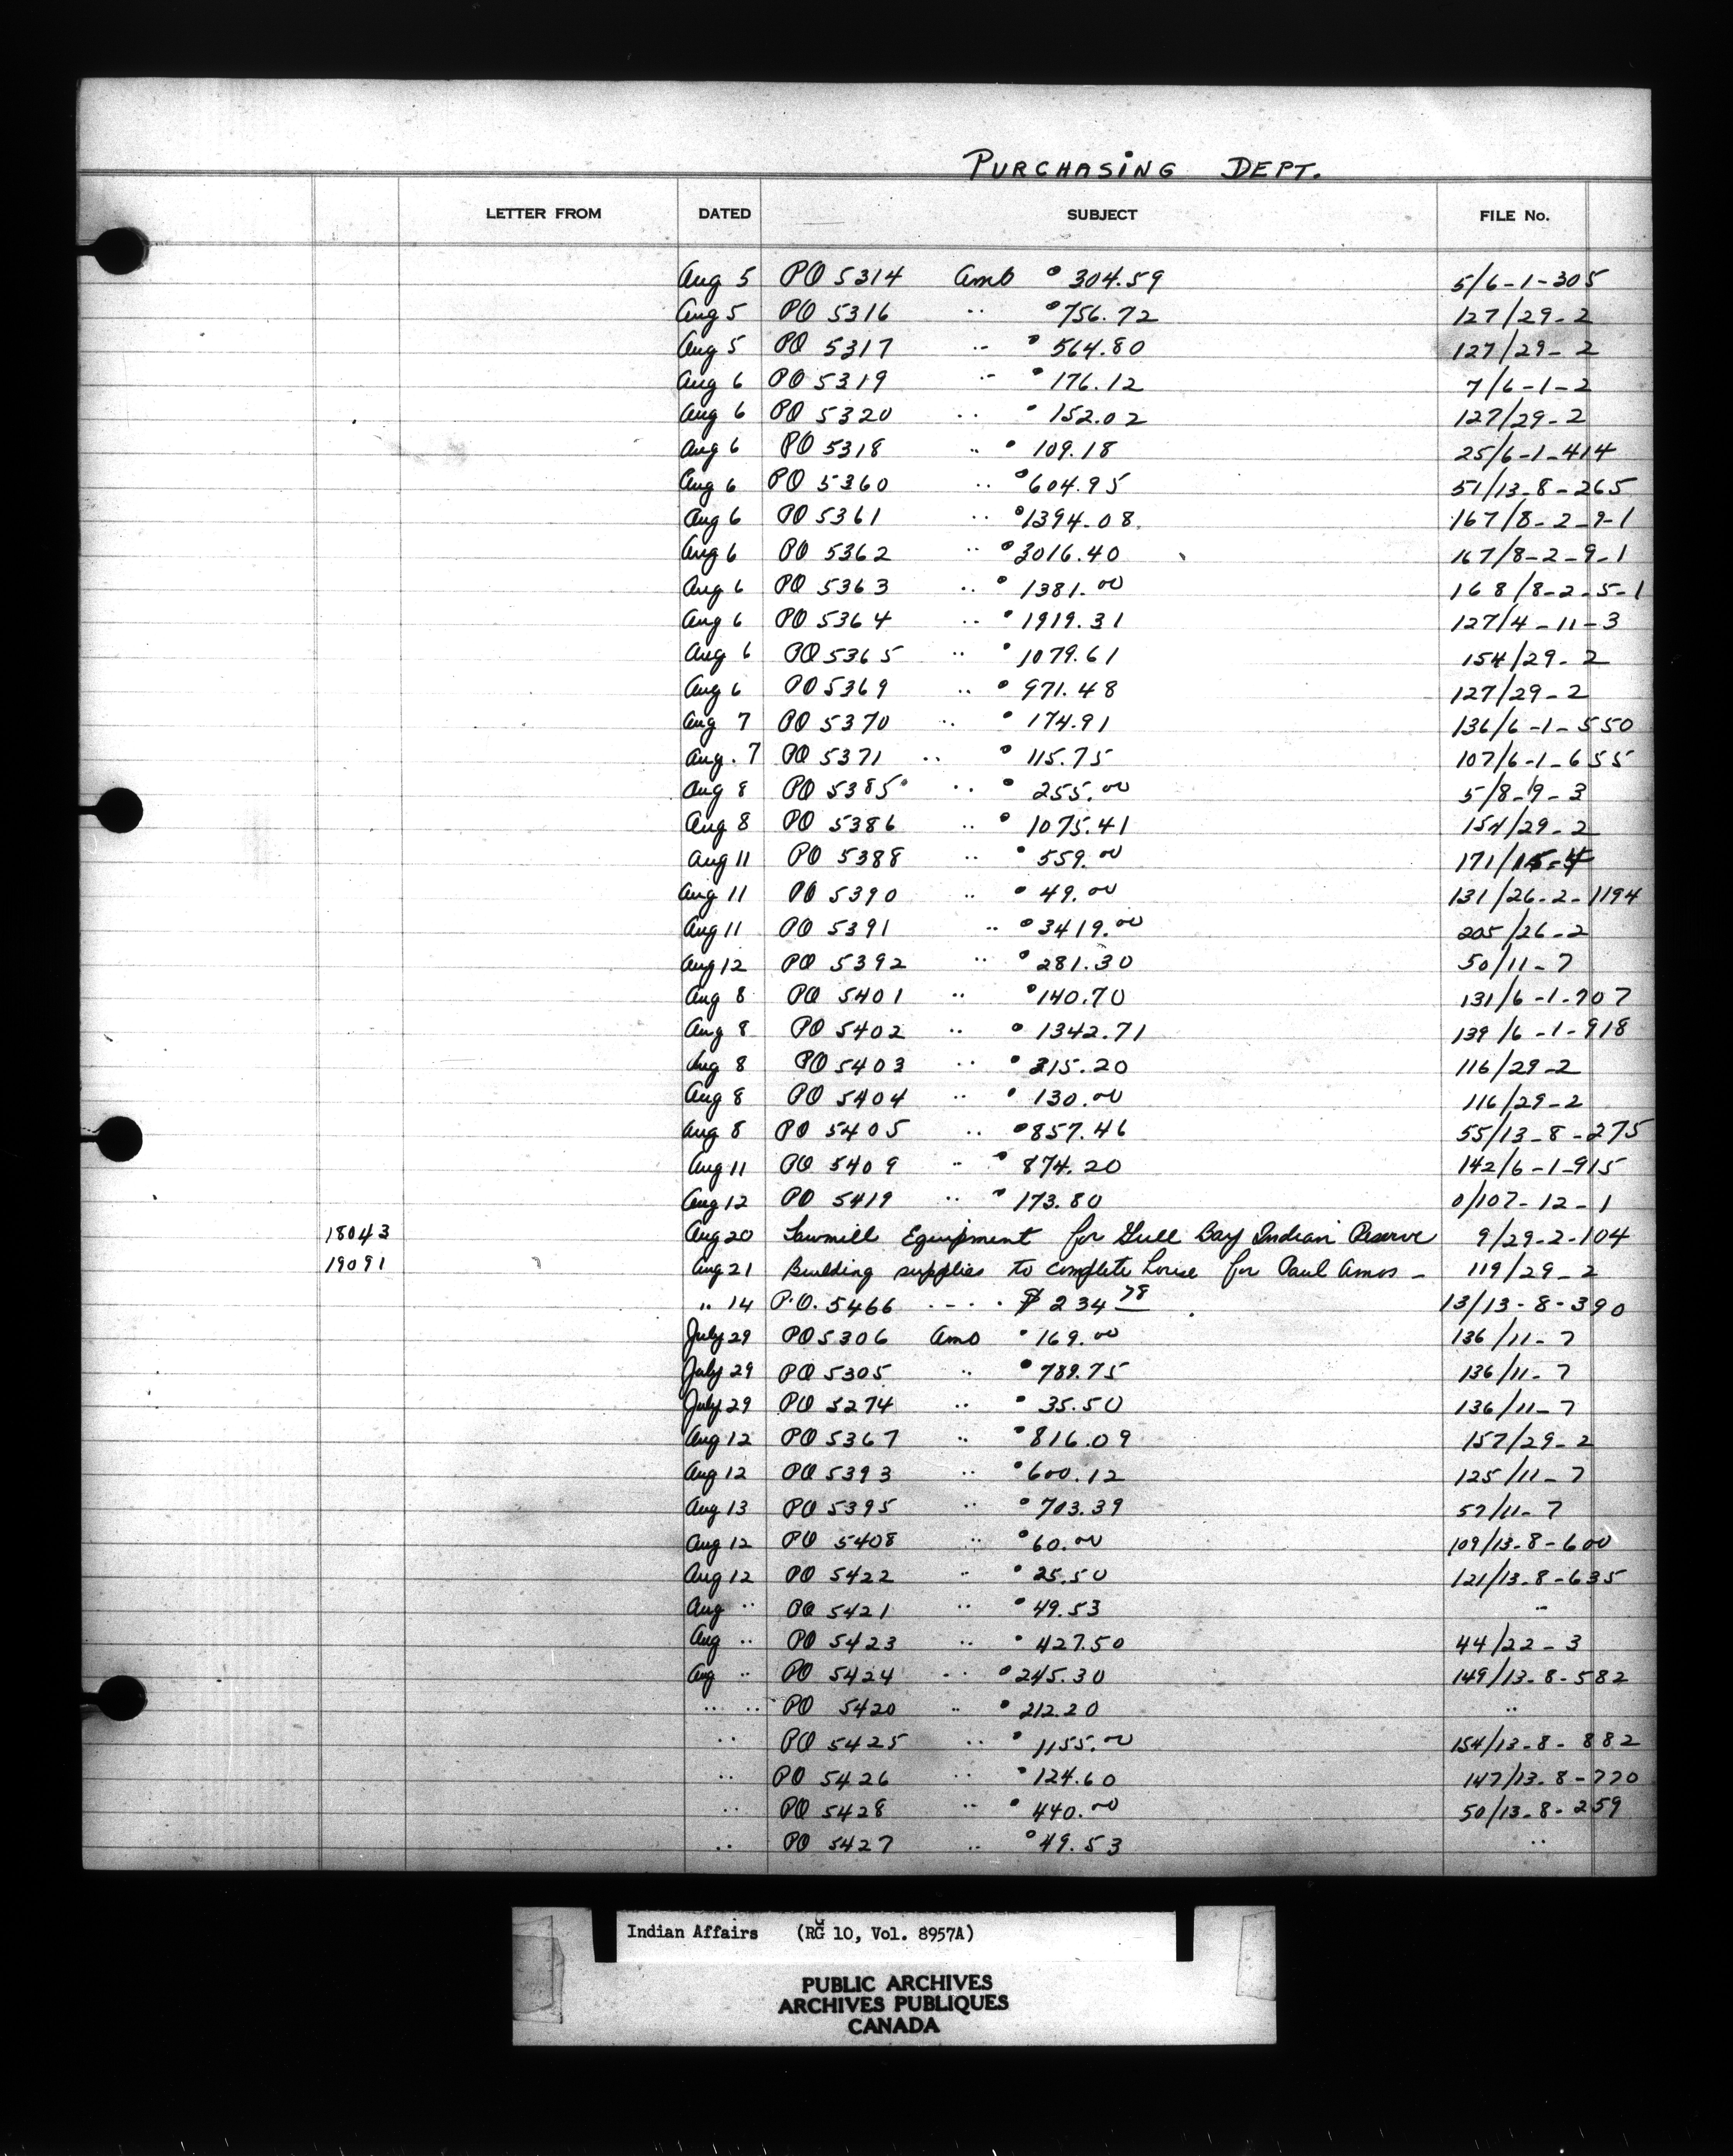 PURCHASING DEPT.
LETTER FROM DATED SUBJECT FILE No.
Aug 5 PO 5314 Amo 304.59 5/6-1-305
Aug 5 PO 5316 .. 756.72 127/29-2
Aug 5 PO 5317 .. 564.80 127/29-2
Aug 6 PO 5319 .. 176.12 7/6-1-2
Aug 6 PO 5320 .. 152.02 127/29-2
Aug 6 PO 5318 .. 109.18 25/6-1-414
Aug 6 PO 5360 .. 604.95 51/13-8-265
Aug 6 PO 5361 .. 1394.08 167/8-2-9-1
Aug 6 PO 5362 .. 3016.40 167/8-2-9-1
Aug 6 PO 5363 .. 1381.00 168/8-2-5-1
Aug 6 PO 5364 .. 1919.31 127/4-11-3
Aug 6 PO 5365 .. 1079.61 154/29-2
Aug 6 PO 5369 .. 971.48 127/29-2
Aug 7 PO 5370 .. 174.91 136/6-1-550
Aug. 7 PO 5371 .. 115.75 107/6-1-655
Aug 8 PO 5385 .. 255.00 5/8-9-3
Aug 8 PO 5386 .. 1075.41 154/29-2
Aug 11 PO 5388 .. 559.00 171/
Aug 11 PO 5390 .. 49.00 131/26-2-1194
Aug 11 PO 5391 .. 3419.00 205/26-2
Aug 12 PO 5392 .. 281.30 50/11-7
Aug 8 PO 5401 .. 140.70 131/6-1-907
Aug 8 PO 5402 .. 1342.71 139/6-1-918
Aug 8 PO 5403 .. 315.20 116/29-2
Aug 8 PO 5404 .. 130.00 116/29-2
Aug 8 PO 5405 .. 857.46 55/13-8-275
Aug 11 PO 5409 .. 874.20 142/6-1-915
Aug 12 PO 5419 .. 173.80 0/107-12-1
18043 Aug 20 Sawmill Equipment for Gull Bay Indian Reserve 9/29-2-104
19091 Aug 21 Building supplies to complete house for Paul Amos - 119/29-2
.. 14 P.O. 5466 .... $234 78 13/13-8-390
July 29 PO 5306 Amo 169.00 136/11-7
July 29 PO 5305 .. 789.75 136/11-7
July 29 PO 5274 .. 35.50 136/11-7
Aug 12 PO 5367 .. 816.09 157/29-2
Aug 12 PO 5393 .. 600.12 125/11-7
Aug 13 PO 5395 .. 703.39 57/11-7
Aug 12 PO 5408 .. 60.00 109/13-8-600
Aug 12 PO 5422 .. 25.50 121/13-8-635
Aug .. PO 5421 .. 49.53 ..
Aug .. PO 5423 .. 427.50 44/22-3
Aug .. PO 5424 .. 245.30 149/13-8-582
.. .. PO 5420 .. 212.20 ..
.. PO 5425 .. 1155.00 154/13-8-882
.. PO 5426 .. 124.60 147/13-8-770
.. PO 5428 .. 440.00 50/13-8-259
.. PO 5427 .. 49.53 ..
Indian Affairs (RG 10, Vol. 8957A)
PUBLIC ARCHIVES
ARCHIVES PUBLIQUES
CANADA